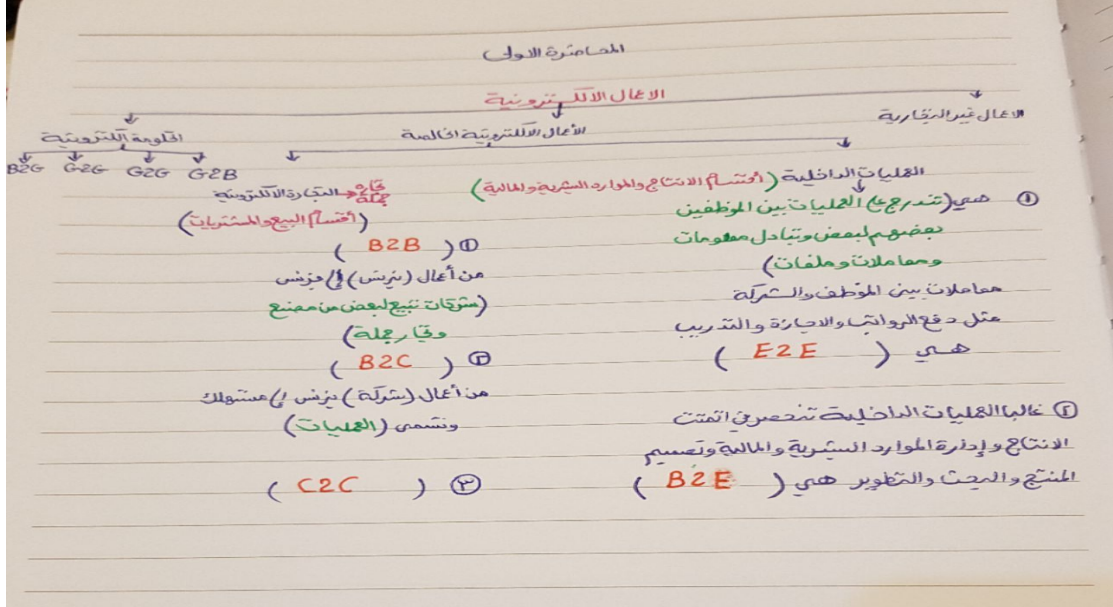 المحاضرة الاولى
الاعمال الالكترونية
الاعمال غير التجارية
الأعمال الالكترونية الخالصة
الحكومة الكترونية
B2G G2G G2G G2B
العمليات الداخلية (أقسام الانتاج والموارد البشرية والمالية)
① هي (تندرج على العمليات بين الموظفين
بعضهم لبعض وتبادل معلومات
ومعاملات وملفات)
معاملات بين الموظف والشركة
مثل دفع الرواتب والاجازة والتدريب
هي ( E2E )
② غالبا العمليات الداخلية تنحصر في اتمتت
الانتاج وإدارة الموارد البشرية والمالية وتصميم
المنتج والبحث والتطوير هي ( B2E )
التجارة الالكترونية
(أقسام البيع والمشتريات)
① ( B2B )
من أعمال (بزنس) إلى بزنس
(شركات تبيع لبعض من مصنع
وتجار جملة)
② ( B2C )
من أعمال (شركة) بزنس إلى مستهلك
وتسمى (العمليات)
③ ( C2C )